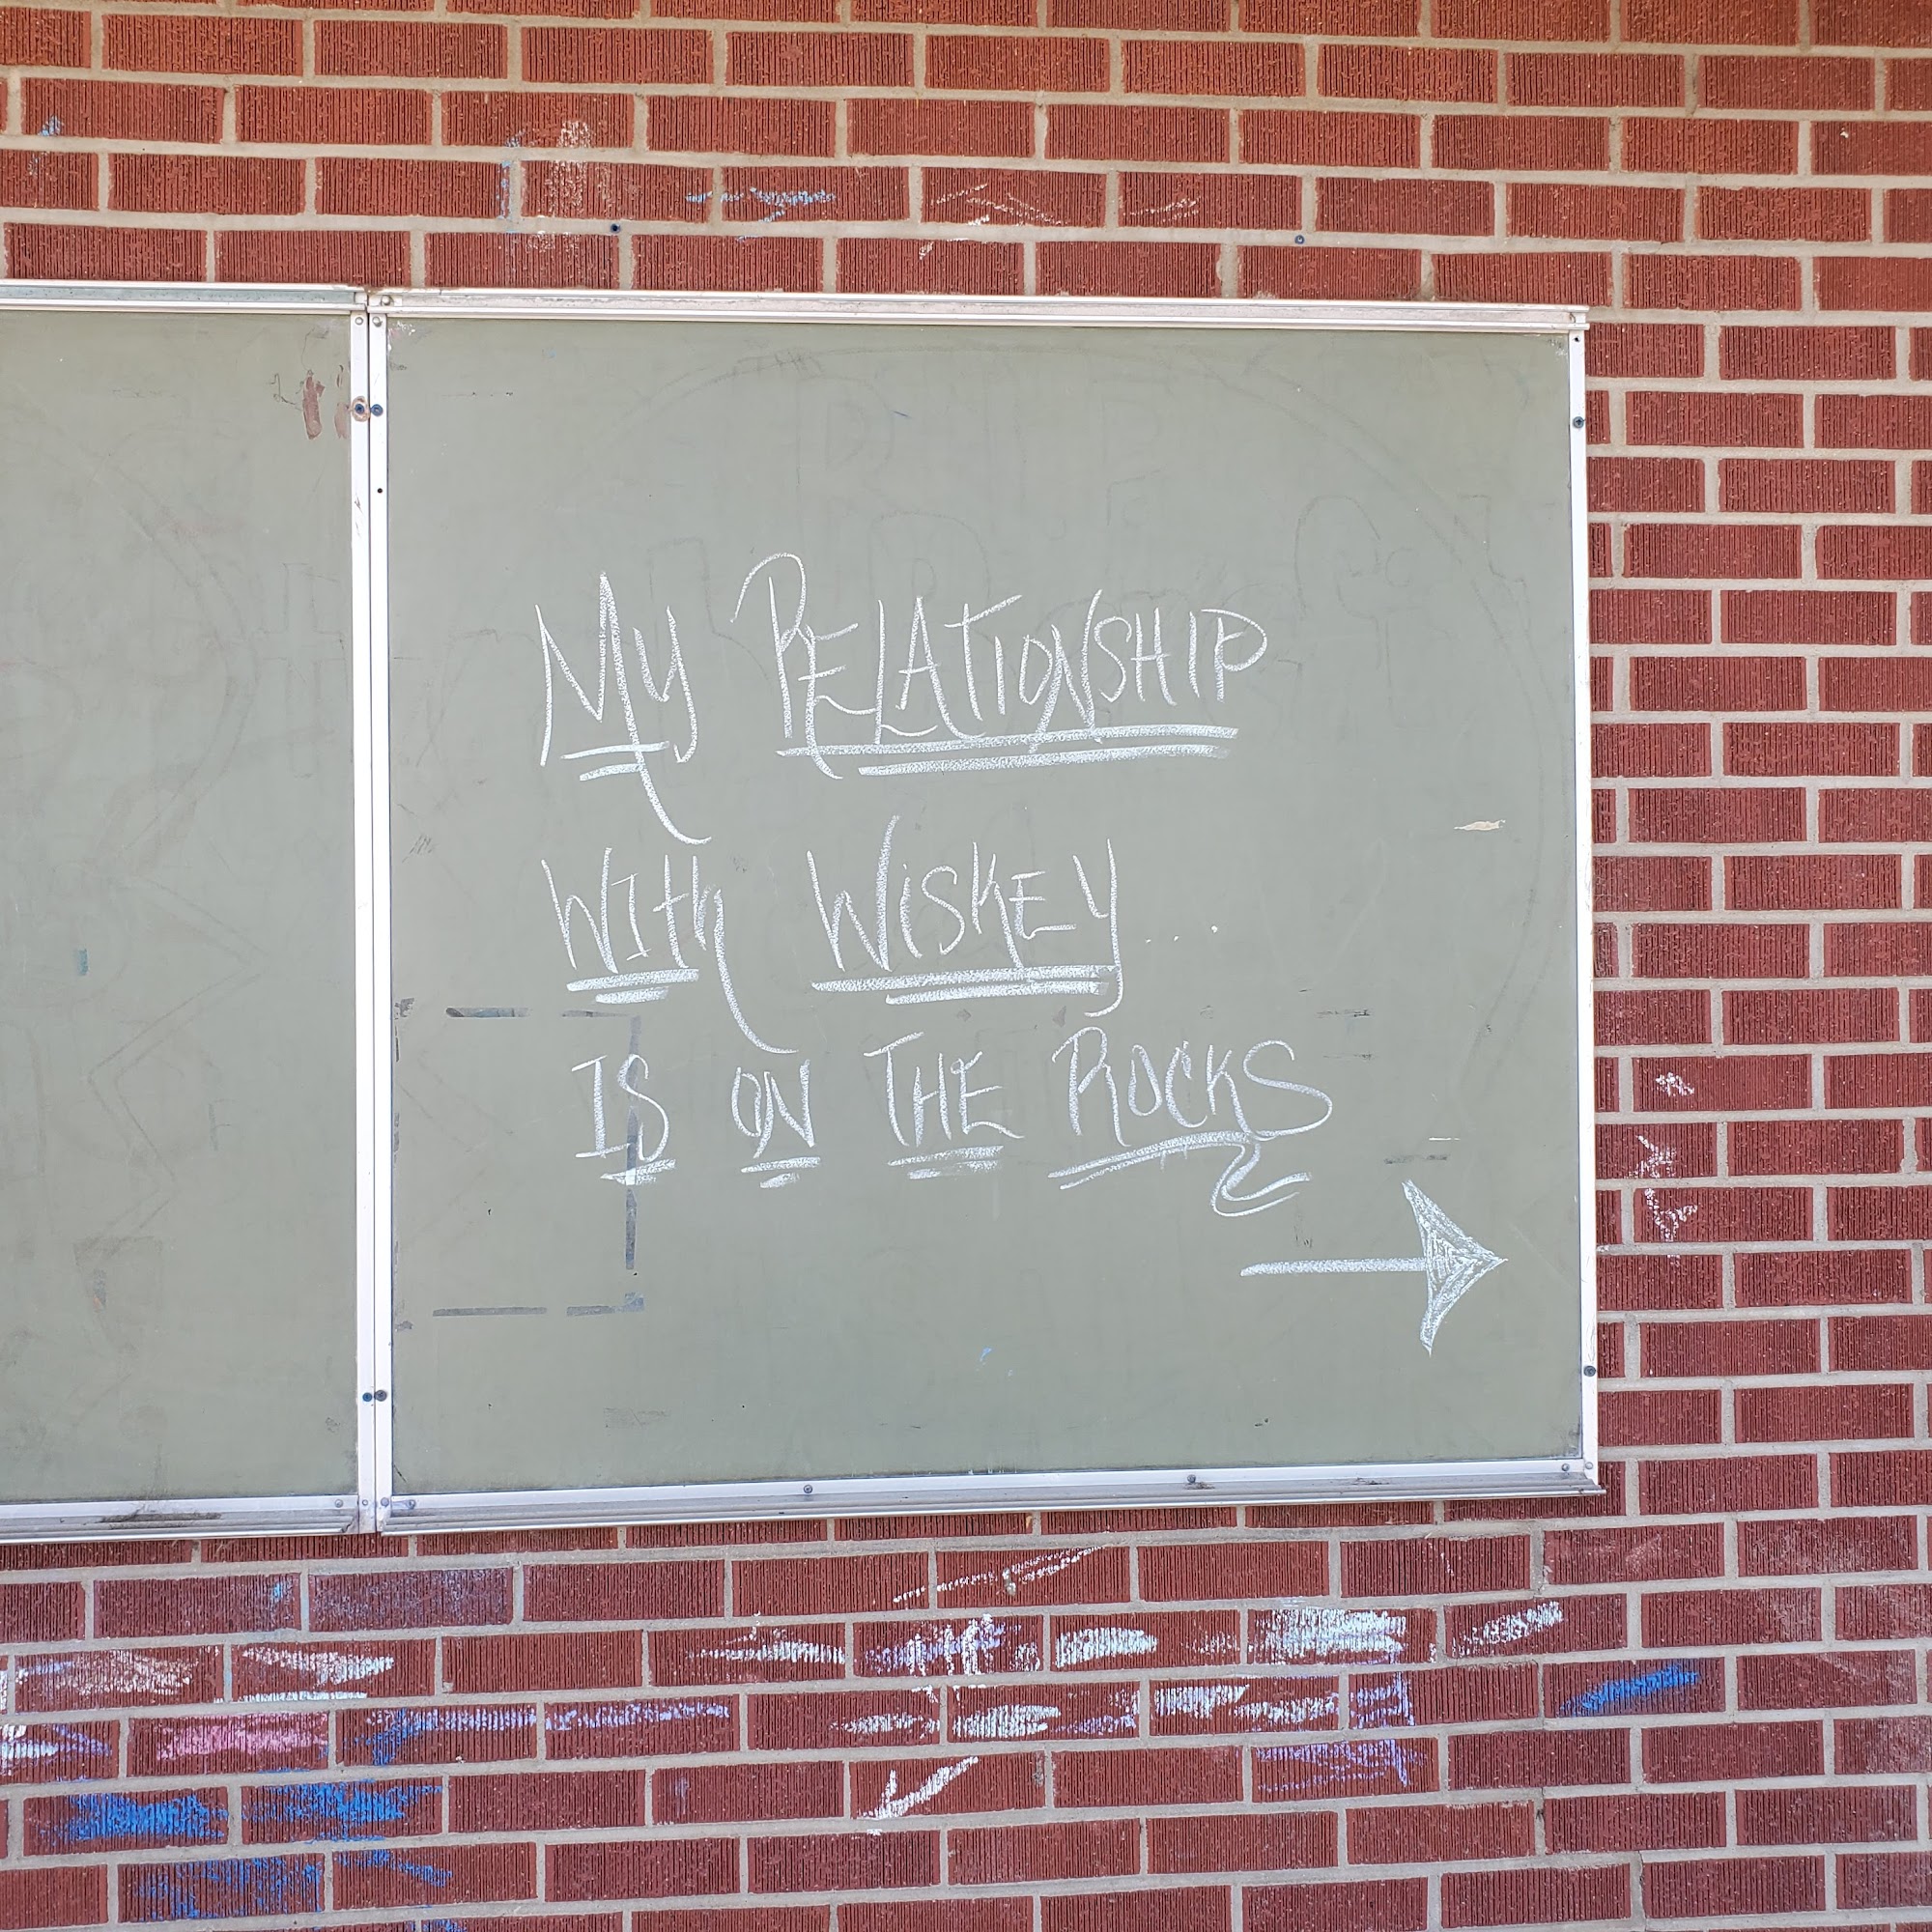 My RELATIONSHIP
WITh WiSKEY...
IS ON THE ROCKS